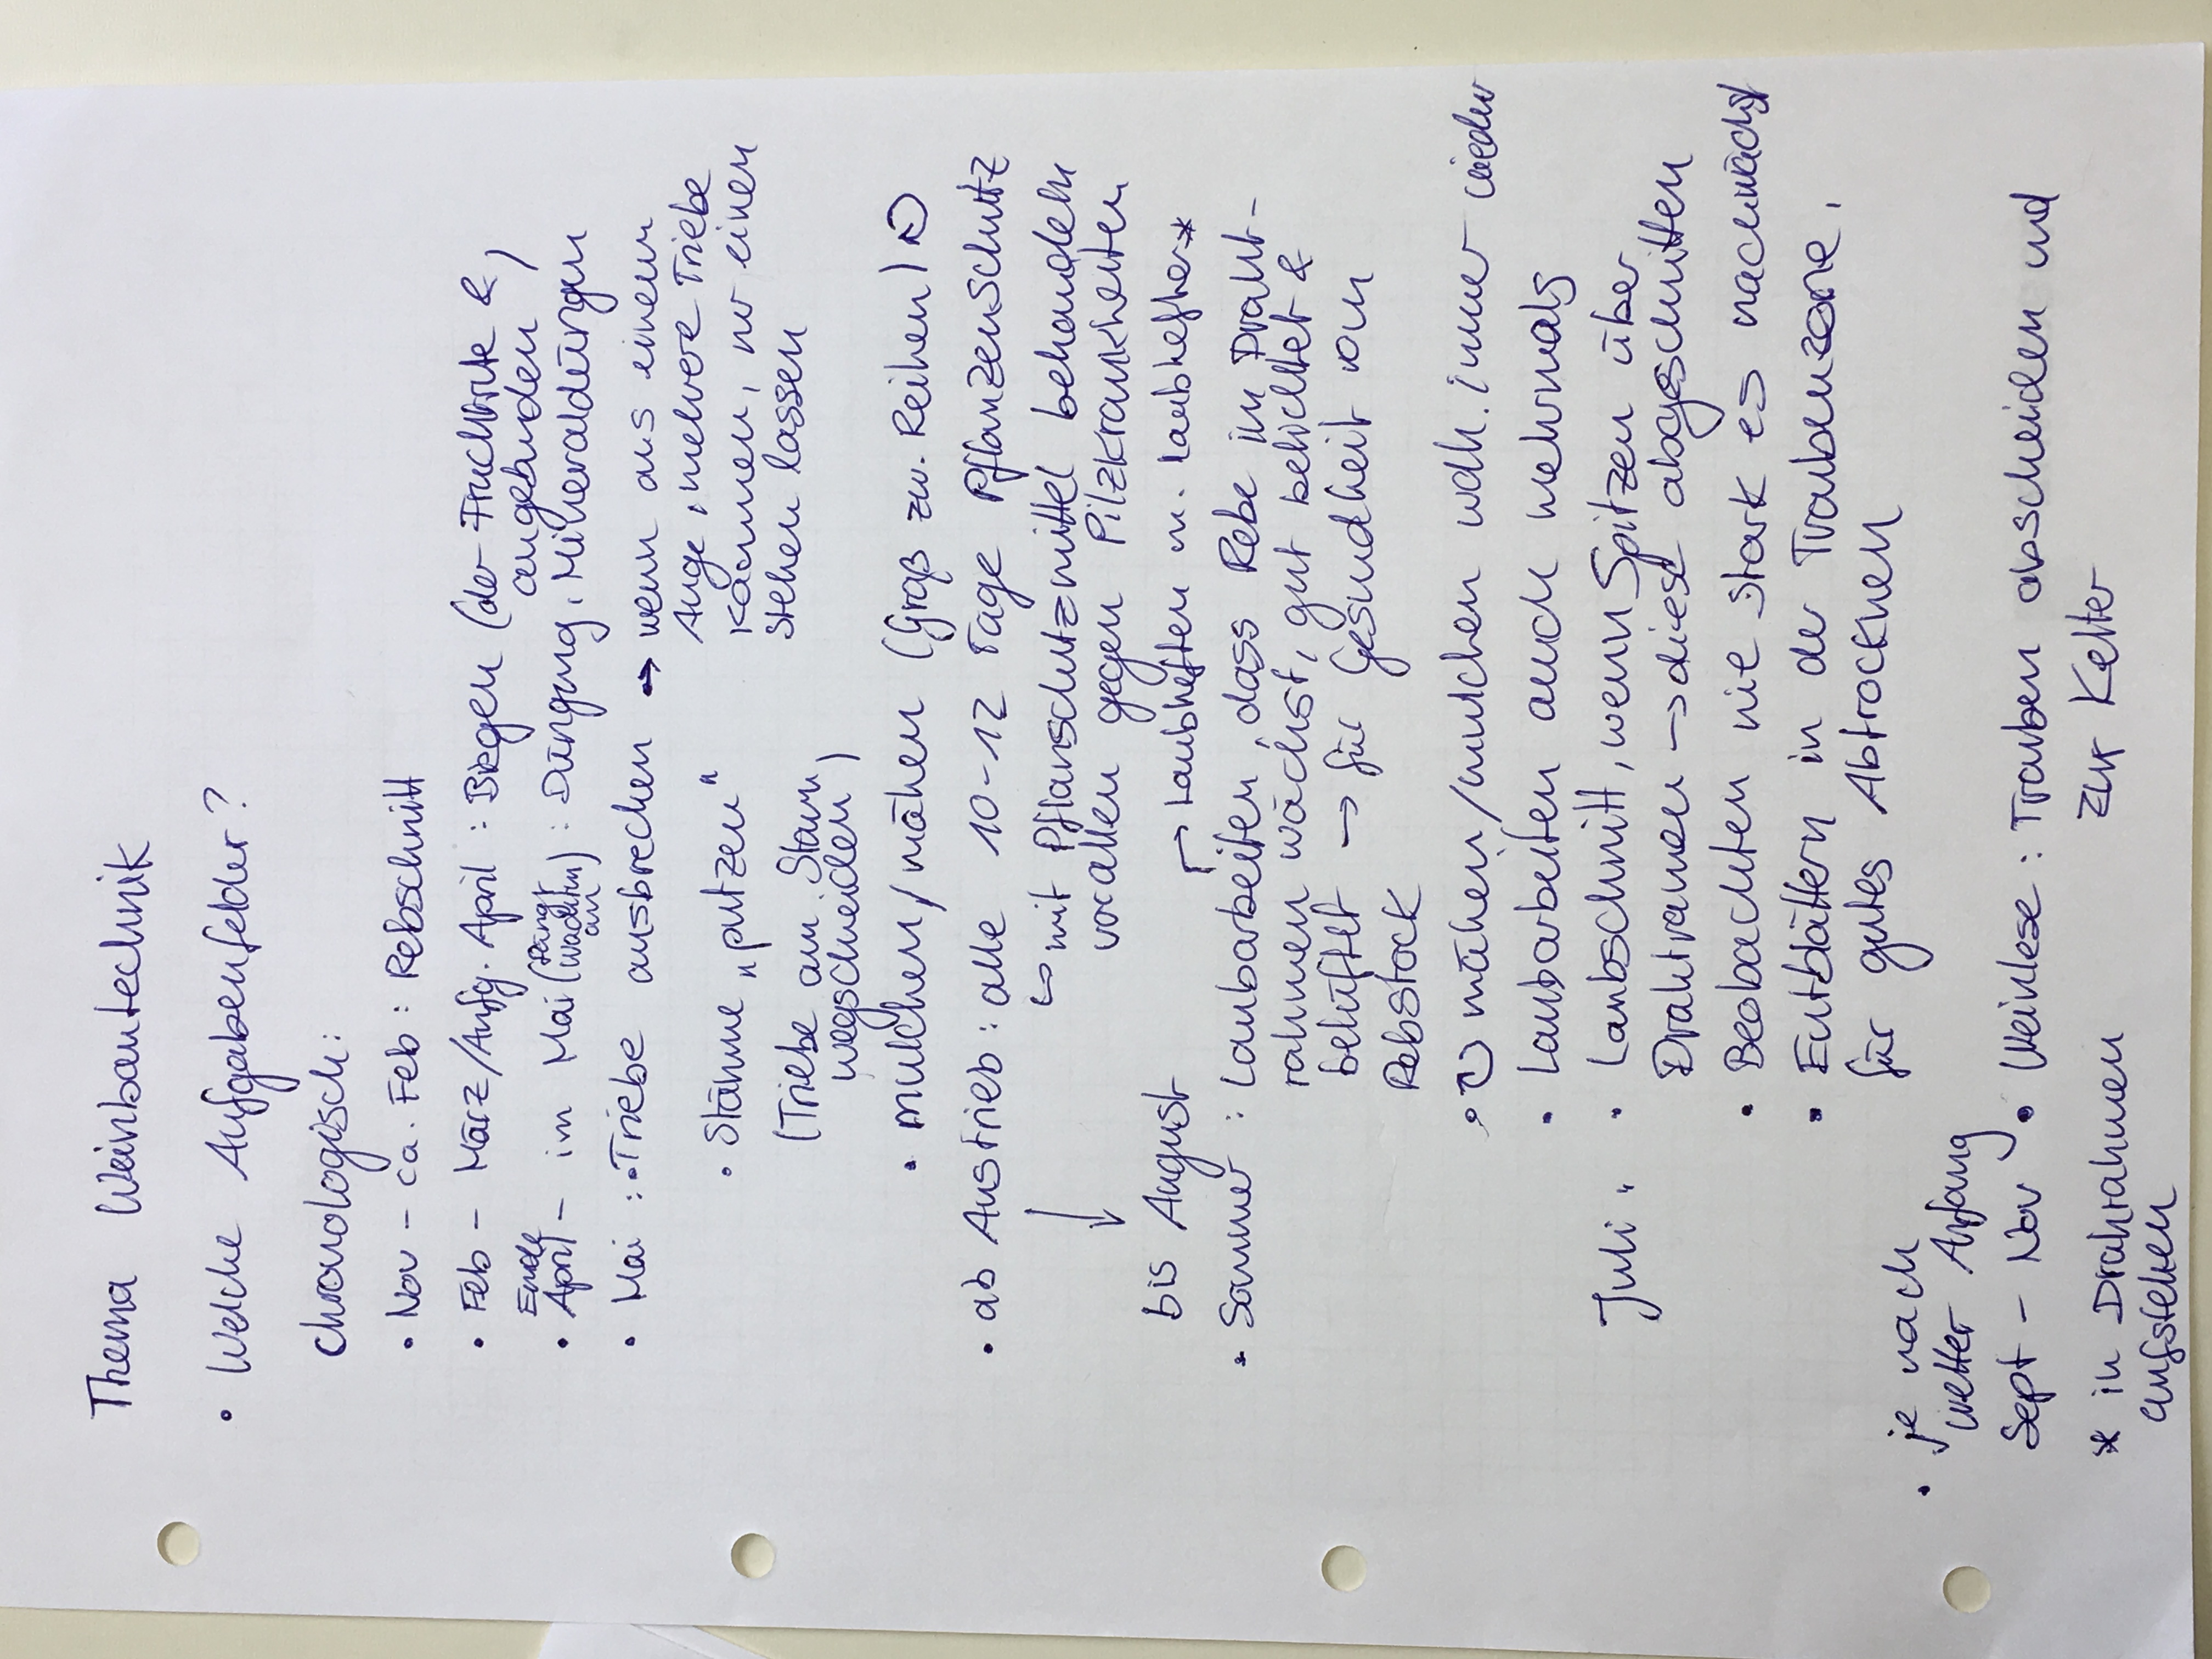 Thema Weinbautechnik
• Welche Aufgabenfelder?
chronologisch:
• Nov – ca. Feb : Rebschnitt
• Feb – März/Anfg. April : Biegen (der Fruchtrute &
angebunden)
• Ende April – im Mai (fängt wachsen an) : Düngung, Mineraldüngen
• Mai : • Triebe ausbrechen → wenn aus einem
Auge, mehrere Triebe
kommen, nur einen
stehen lassen
• Stämme „putzen"
(Triebe am Stamm
wegschneiden)
• mulchen/mähen (Graß zw. Reihen) ↻
• ab Austrieb : alle 10-12 Tage Pflanzenschutz
↪ mit Pflanschutzmittel behandeln
vorallen gegen Pilzkrankheiten
↓
bis August
↱ Laubheften m. Laubhefter*
• Sommer : Laubarbeiten, dass Rebe im Draht-
rahmen wächst, gut belichtet &
belüftet → für Gesundheit vom
Rebstock
• ↻ mähen/mulchen wdh. immer wieder
• Laubarbeiten auch mehrmals
Juli • Laubschnitt, wenn Spitzen über
Drahtramen → diese abgeschnitten
• Beobachten wie stark es nachwächst
• Entblättern in der Traubenzone,
für gutes Abtrocknen
• je nach
wetter Anfang
Sept – Nov • Weinlese : Trauben abscheiden und
zur Kelter
* in Drahrahmen
aufstellen